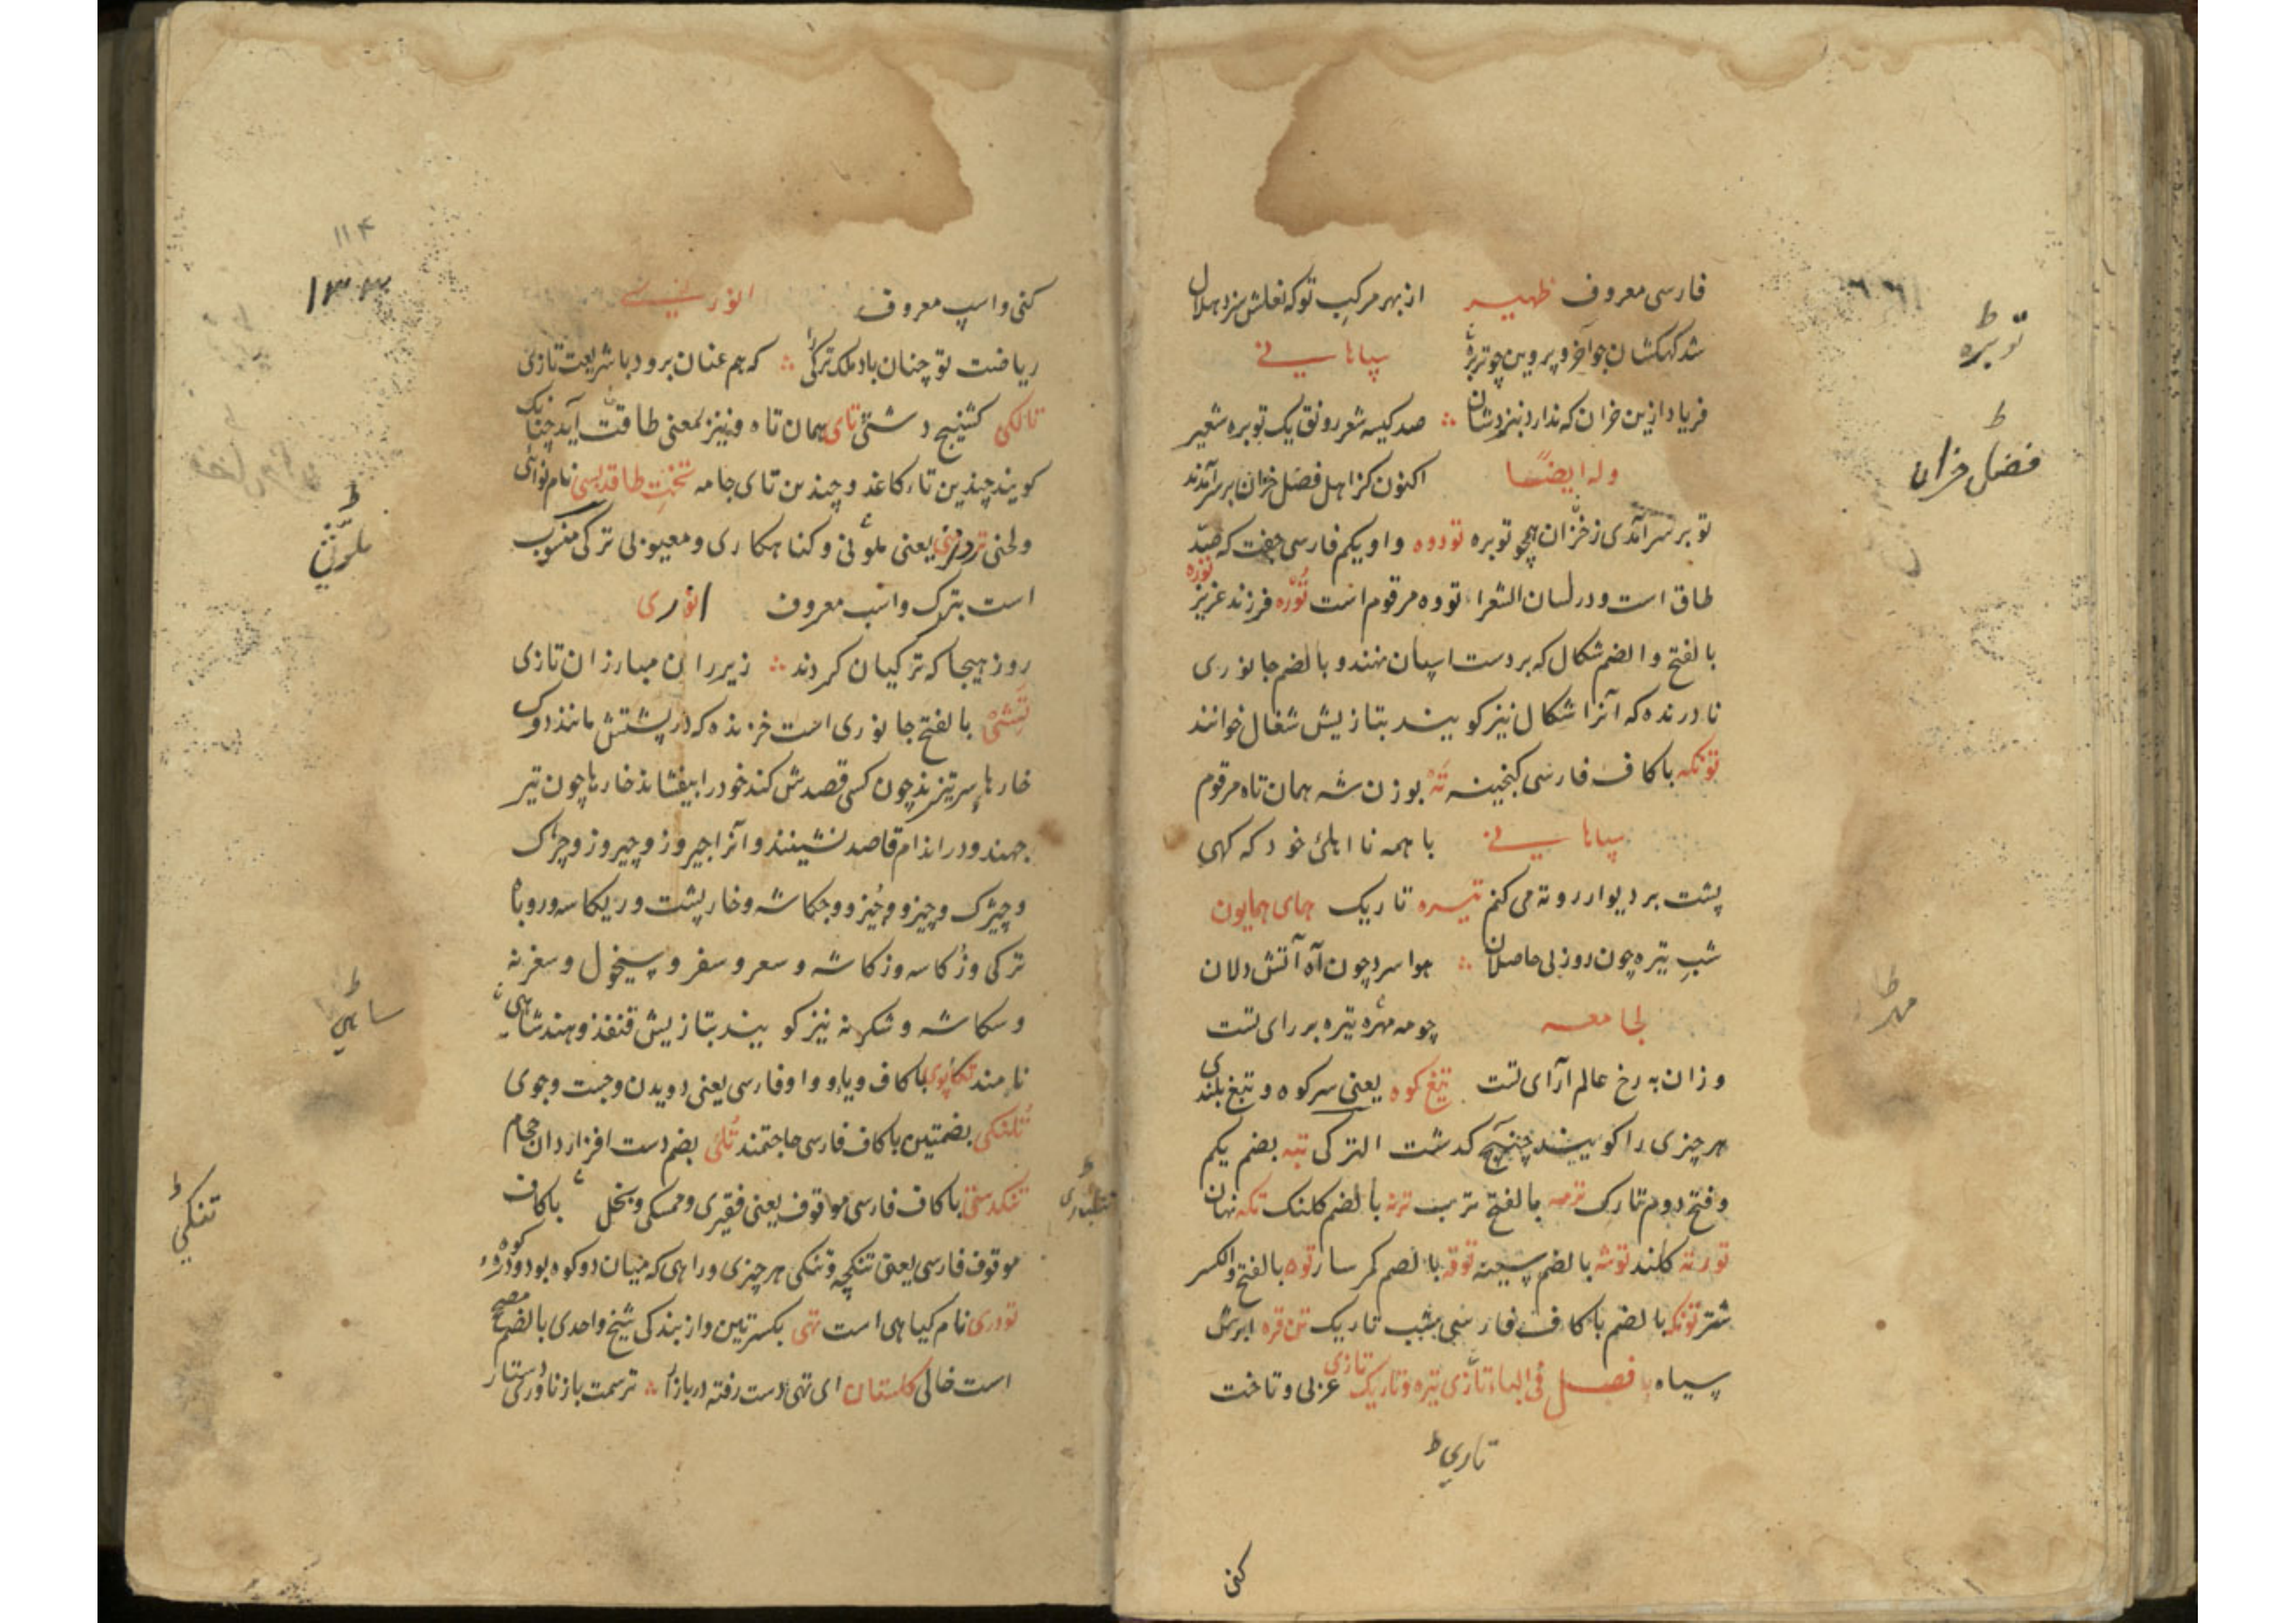 فارسی معروف ظهیر از بهر مرکب تو که نعلش سزد هلال
شد کهکشان چو آخر و پروین چو توبره سپاهانی
فریاد ازین خران که ندارد بنزدشان صد کیسه شعر رونق یک توبره شعیر
وله ایضا اکنون کز اهل فضل خران بر سر آمدند
تو بر سر آمدی ز خران همچو توبره تووه واو یکم فارسی جفت که ضد
طاق است و در لسان الشعرا تووه مرقوم است توره فرزند عزیز
توره
بالفتح والضم شکال که بر دست اسپان نهند و بالضم جانوری
نادرنده که آنرا شکال نیز گویند بتازیش شغال خوانند
تونکه باکاف فارسی کنجینه ته بوزن شه همان تاه مرقوم
سپاهانی با همه نااهلی خود که کهی
پشت بر دیوار رو ته می کنم تیره تاریک همای همایون
شب تیره چون روز بی حاصلان هوا سرد چون آه آتش دلان
لجامعه چو مه مهره تیره بر رای تست
وزان به رخ عالم آرای تست تیغ کوه یعنی سر کوه و تیغ بلندی
هر چیزی را گویند چنانچه گذشت الترکی تبه بضم یکم
و فتح دوم تارک ترمه بالفتح ترب ترنه بالضم کلنک تکه نهان
تورته کلند توشه بالضم سینه توقه بالضم کمر سار توه بالفتح والکسر
شتر تونکه بالضم باکاف فارسی شب تاریک تن قره ابرش
سیاه فصل فی الیاء تازی تیره و تاریک تازی عربی و تاخت
تاری ط
کنی
توبره ط
فضل خران ط
مهر ط
کنی و اسپ معروف انوری
ریاضت تو چنان باد ملک ترکی را که هم عنان برود با شریعت تازی
تالکی کشنیج دشتی تای همان تاه و نیز بمعنی طاقت آید چنانک
گویند چندین تاء کاغذ و چندین تای جامه تخت طاقدیسی نام نوائی
ولحنی تردامنی یعنی ملوثی و گناهکاری و معیوبی ترکی منسوب
است بترک و اسب معروف انوری
روز هیجا که ترکیان کردند زیر ران مبارزان تازی
تشی بالفتح جانوری است خزنده که در پشتش مانند دوک
خارها سرتیزند چون کسی قصدش کند خود را بیفشاند خارها چون تیر
جهند و در اندام قاصد نشینند و آنرا جیروز و چیروز و چژک
ترکی و زکاسه و زکاشه و سعر و سفر و سیخول و سغرنه
و سکاشه و شکرنه نیز گویند بتازیش قنفذ و هند ساهی
نامند تکاپوی باکاف و یا و واو فارسی یعنی دویدن و جست و جوی
تلنکی بضمتین باکاف فارسی حاجتمند تلی بضم دست افزاردان حجام
تنکدستی باکاف فارسی موقوف یعنی فقیری و ممسکی و بخل باکاف
موقوف فارسی یعنی تنکچه و تنکی هر چیزی و راهی که میان دو کوه بود و دره کوه
تودری نام کیاهی است تهی بکسرتین و از بندکی شیخ واحدی بالضم مصحح
است خالی گلستان ای تهی دست رفته در بازار ترسمت باز ناوری دستار
۱۱۴
۱۳۳
ملوثی ط
ساهی ط
تنکی ط